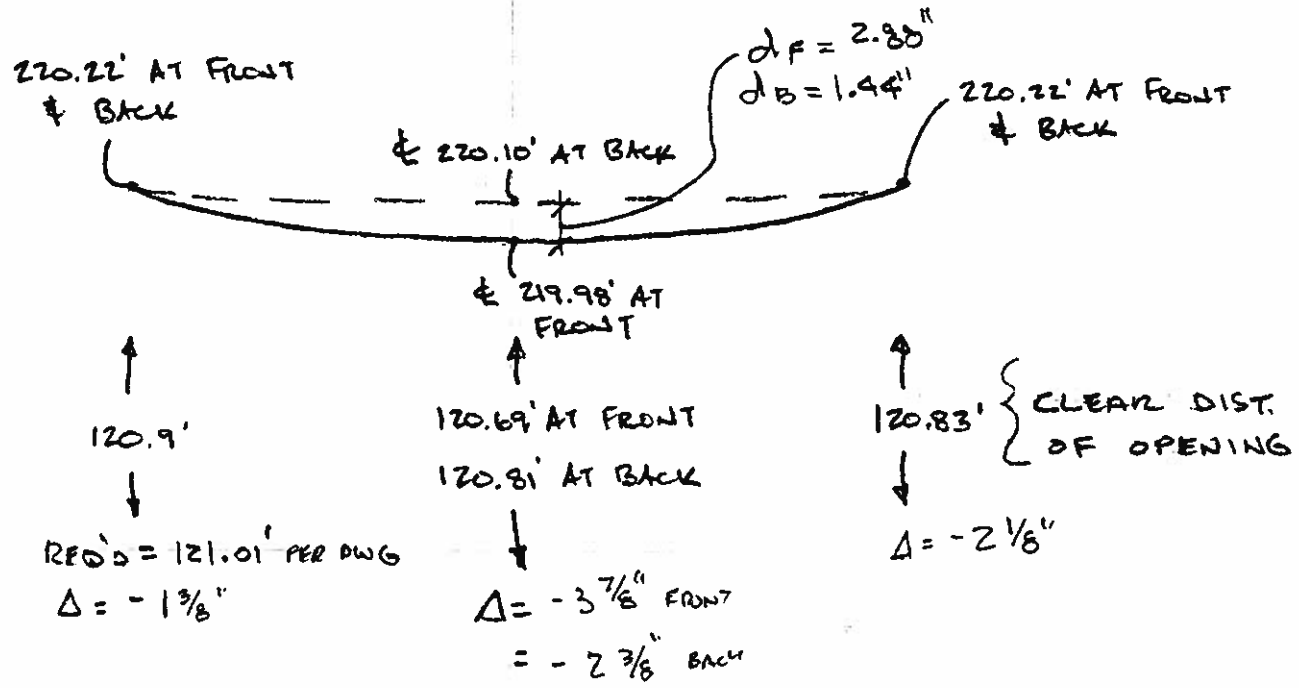 220.22' AT FRONT
& BACK
℄ 220.10' AT BACK
dF = 2.88"
dB = 1.44"
220.22' AT FRONT
& BACK
℄ 219.98' AT
FRONT
120.9'
REQ'D = 121.01' PER DWG
Δ = - 1 3/8"
120.69' AT FRONT
120.81' AT BACK
Δ = - 3 7/8" FRONT
= - 2 3/8" BACK
120.83'
CLEAR DIST.
OF OPENING
Δ = - 2 1/8"